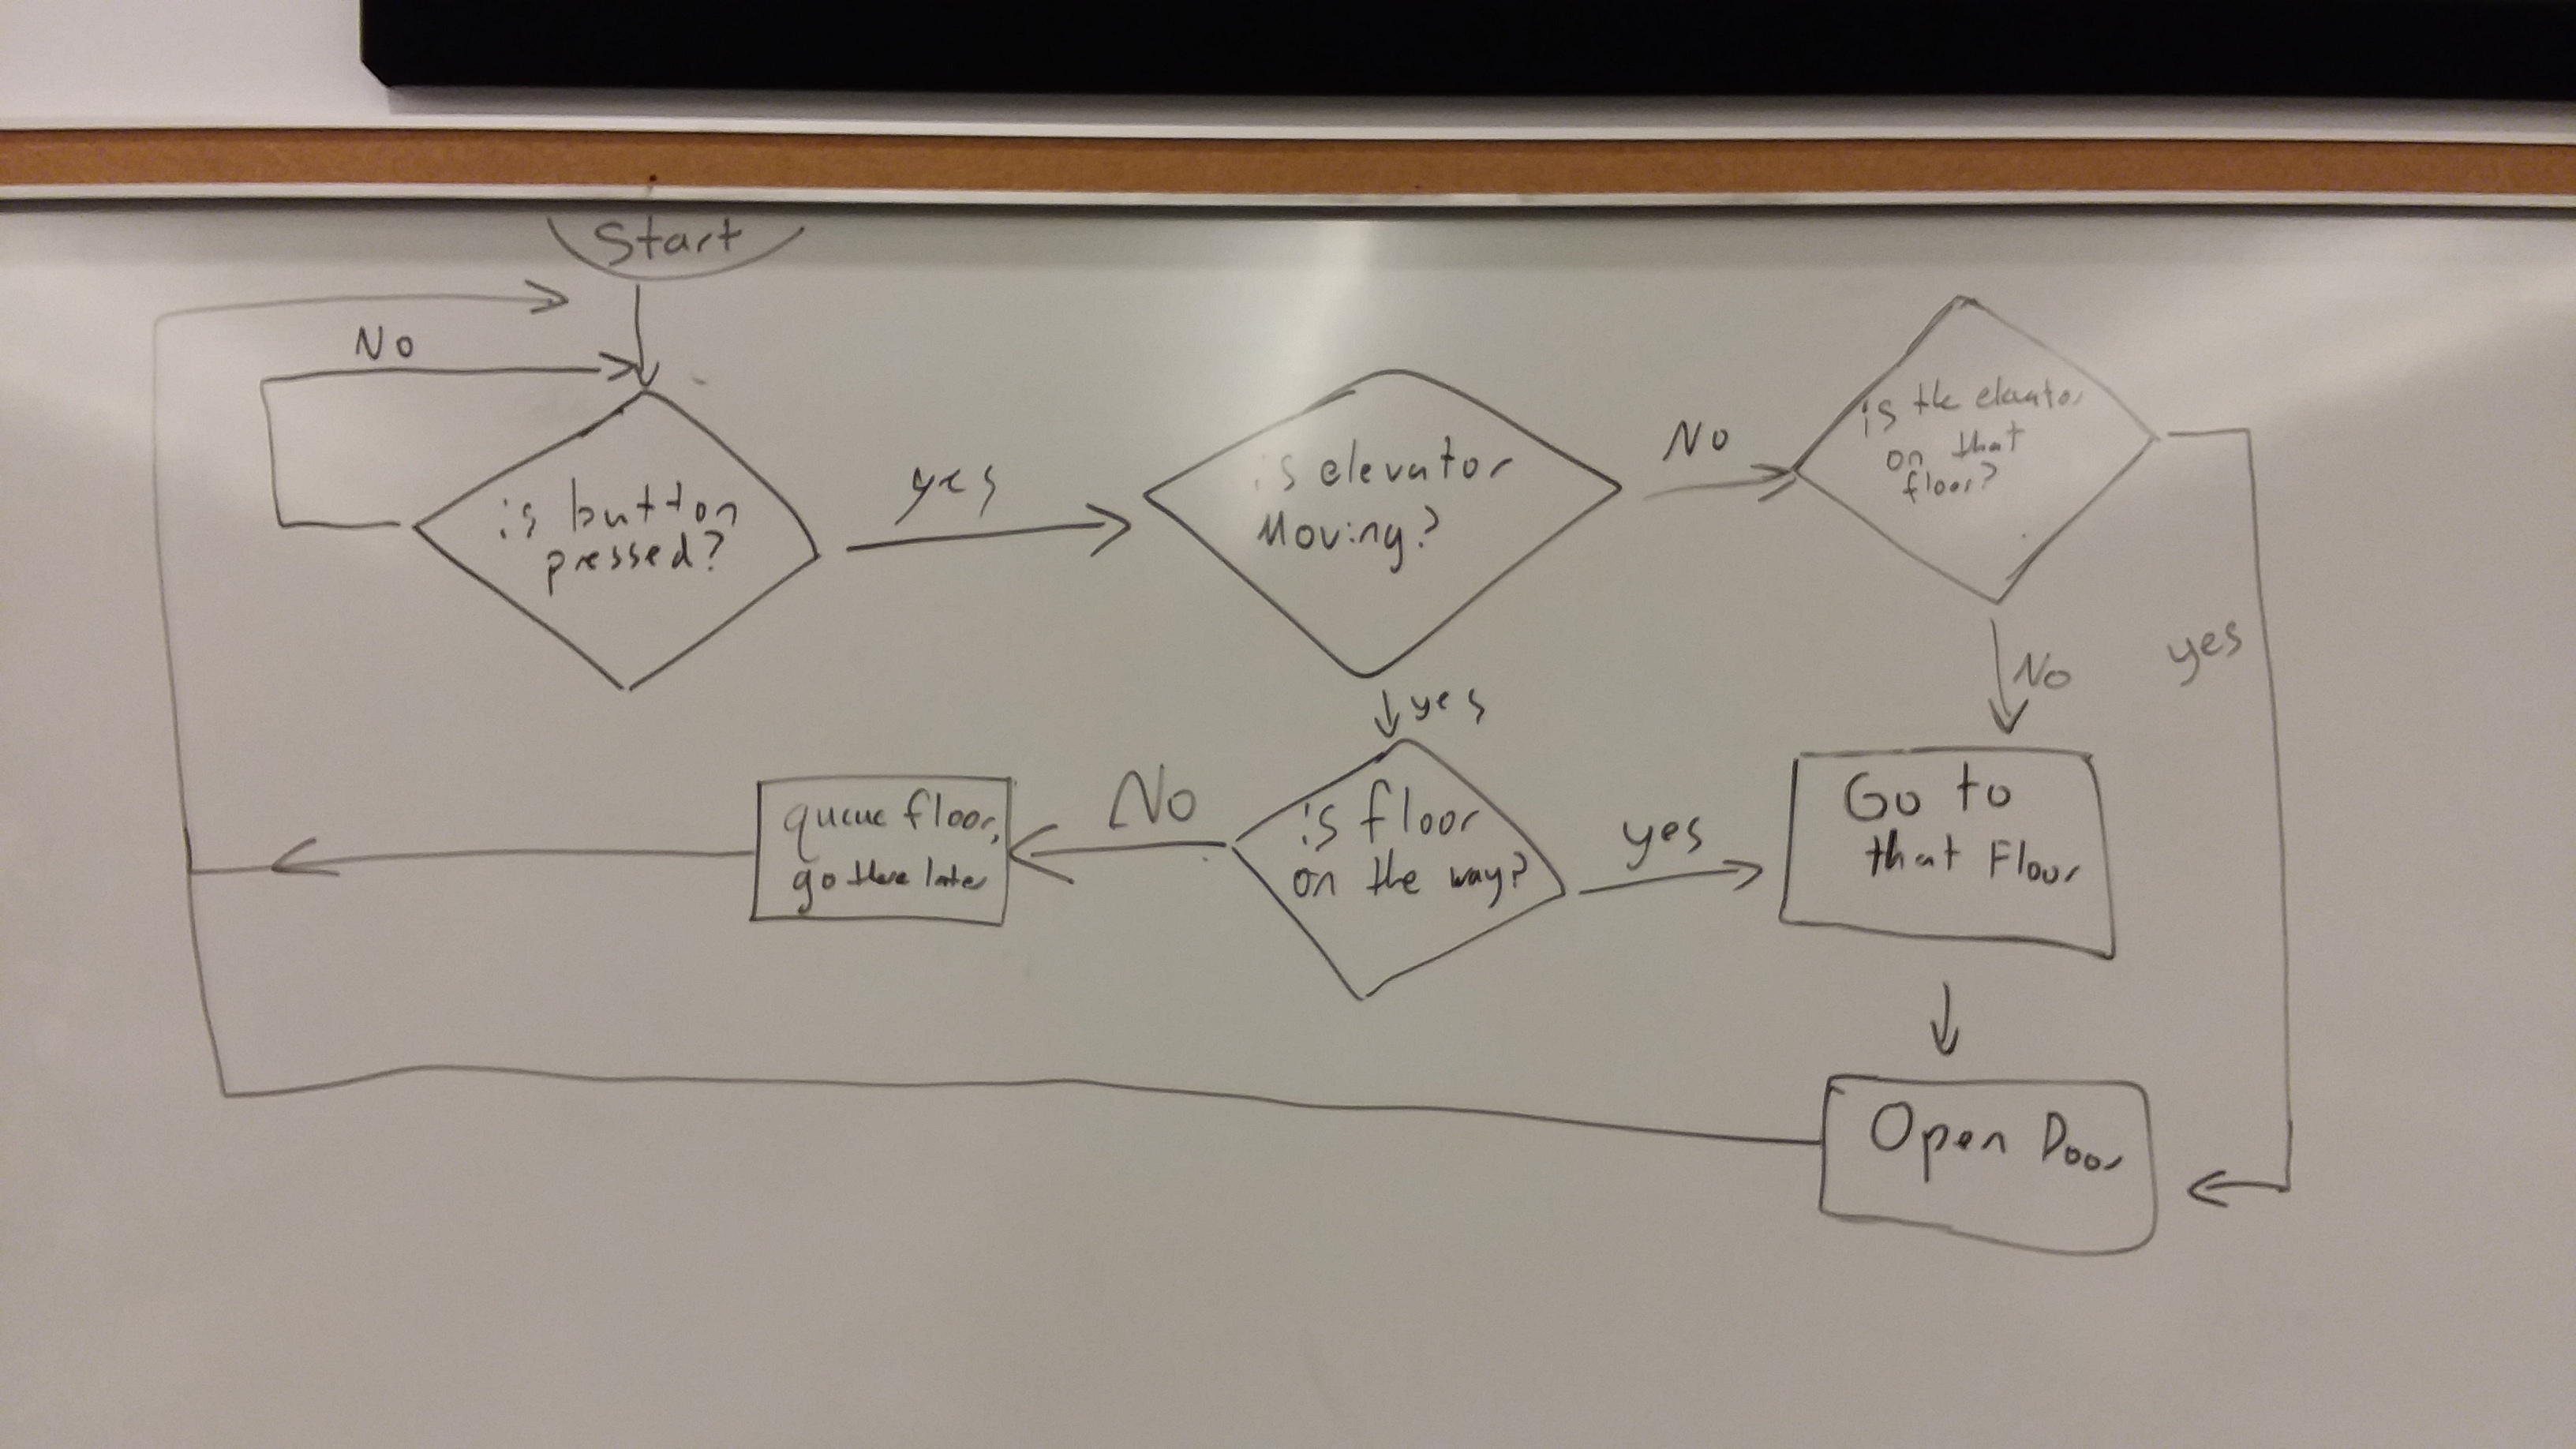 Start
No
is button
pressed?
yes
is elevator
Moving?
No
is the elevator
on that
floor?
yes
No
yes
queue floor,
go there later
No
is floor
on the way?
yes
Go to
that Floor
Open Door